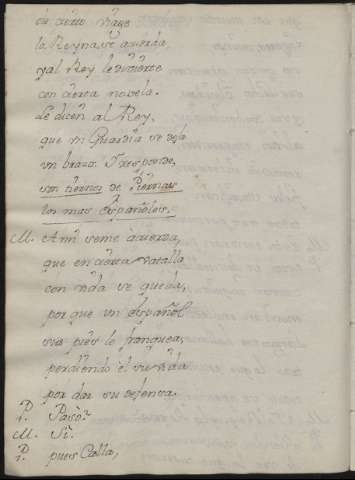 en cierto viage
la Reyna se acuerda,
y al Rey le divierte
con cierta novela.
Le dicen al Rey,
que un Guardia se dejo
un brazo. Y responde,
son tiernos de Piernas
los mas Españoles.
M. A mi seme acuerda,
que en cierta vatalla
con vida se queda,
por que un Español
sus pies le franquea,
perdiendo el su vida
por dar su defensa.
P.
1. Paso?
M. Si.
P.
1. pues Calla,